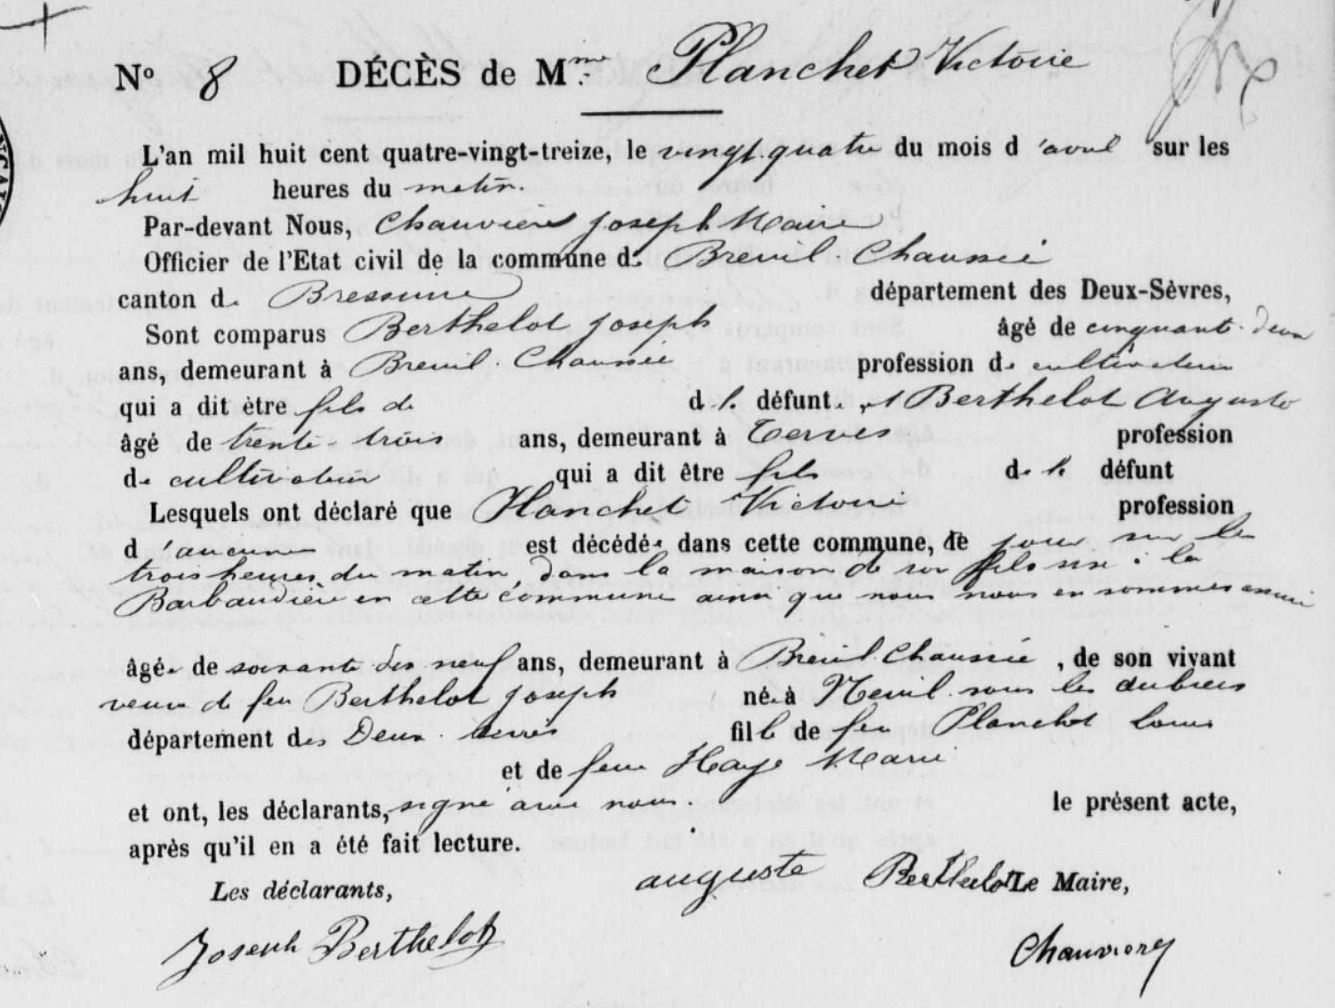 N° 8 DÉCÈS de Mme Planchet Victoire
L'an mil huit cent quatre-vingt-treize, le vingt quatre du mois d'avril sur les
huit heures du matin.
Par-devant Nous, Chauvière Joseph Maire
Officier de l'Etat civil de la commune de Breuil-Chaussée
canton de Bressuire département des Deux-Sèvres,
Sont comparus Berthelot Joseph âgé de cinquante-deux
ans, demeurant à Breuil-Chaussée profession de cultivateur
qui a dit être fils de de la défunte, et Berthelot Auguste
âgé de trente-trois ans, demeurant à Terves profession
de cultivateur qui a dit être fils de la défunt
Lesquels ont déclaré que Planchet Victoire profession
d'aucune est décédée dans cette commune, ce jour sur les
trois heures du matin, dans la maison de son fils sise à la
Barbaudière en cette commune ainsi que nous nous en sommes assuré
âgée de soixante dix neuf ans, demeurant à Breuil-Chaussée, de son vivant
veuve de feu Berthelot Joseph née à Nueil-sous-les-Aubiers
département des Deux-Sèvres fille de feu Planchet Louis
et de feue Haye Marie
et ont, les déclarants, signé avec nous. le présent acte,
après qu'il en a été fait lecture.
Les déclarants, auguste Berthelot Le Maire,
Joseph Berthelot